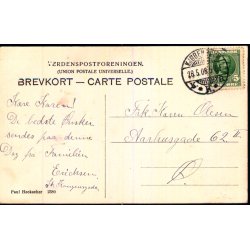 VERDENSPOSTFORENINGEN.
(UNION POSTALE UNIVERSELLE.)
BREVKORT — CARTE POSTALE
Kære Karen!
De bedste Ønsker
sendes paa denne
Dag fra Familien
Ericksen
Frk. Karen Olesen
Aarhusgade 62
Paul Heckscher